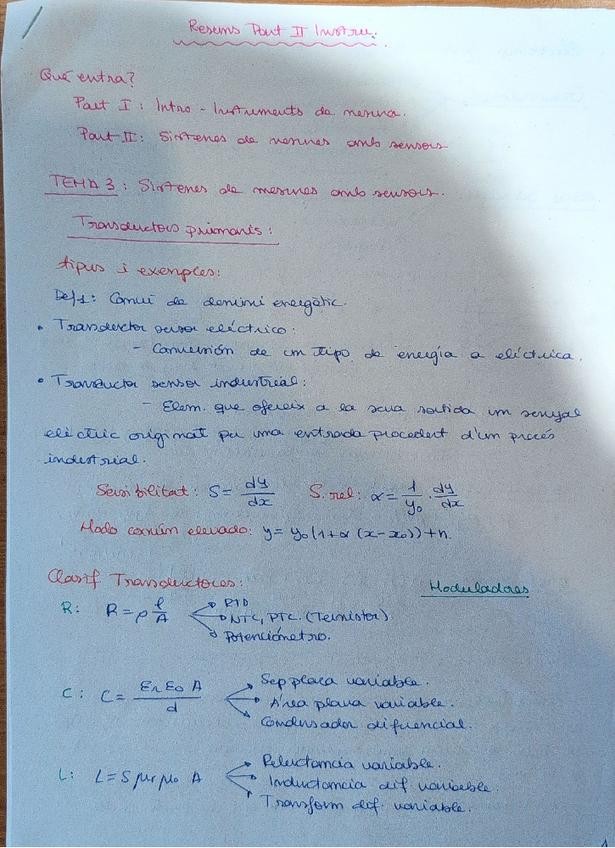 Resums Part II Instru.
Qué entra?
Part I: Intro - Instruments de mesura.
Part II: Sistemes de mesures amb sensors
TEMA 3: Sistemes de mesures amb sensors.
Transductors primaris:
tipus i exemples:
Def1: Canvi de domini energètic.
• Transductor sensor eléctrico:
- Conversión de un tipo de energía a eléctrica.
• Transductor sensor industrial:
- Elem. que ofereix a la seua sortida un senyal
elèctric originat per una entrada procedent d'un procés
industrial.
Sensibilitat: S = dy/dx S. rel: α = 1/y₀ · dy/dx
Modo común elevado: y = y₀(1+α(x-x₀))+n.
Clasif Transductores: Moduladores
R: R = ρ l/A → RTD
→ NTC, PTC. (Termistor)
→ Potenciómetro.
C: C = εr ε0 A / d → Sep placa variable.
→ Área plana variable.
→ Condensador diferencial.
L: L = S μr μ0 A → Reluctancia variable.
→ Inductancia dif variable.
→ Transform dif. variable.